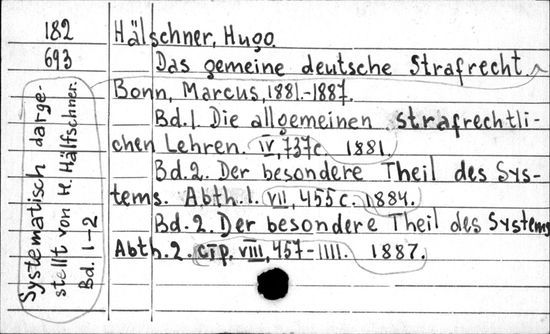 182 Hälschner, Hugo.
693 Das gemeine deutsche Strafrecht
Bonn, Marcus, 1881.-1887.
Bd.1. Die allgemeinen strafrechtli-
chen Lehren. IV, 737c. 1881.
Bd.2. Der besondere Theil des Sys-
tems. Abth.1. VII, 455c. 1884.
Bd.2. Der besondere Theil des Systems
Abth.2. стр. VIII, 457-1111. 1887.
Systematisch darge-
stellt von H. Hälfschner.
Bd. 1-2